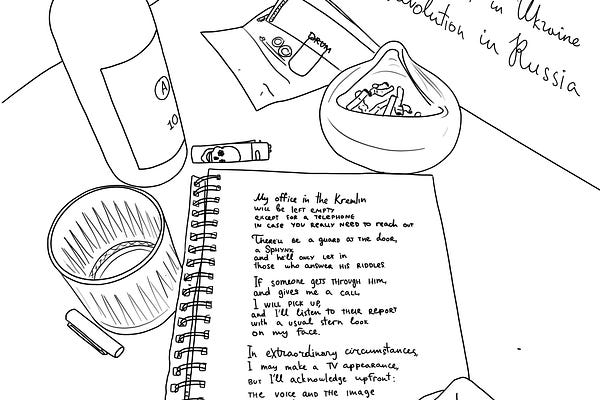 in Ukraine
Revolution in Russia
DRUM
A
10
My office in the Kremlin
will be left empty
except for a telephone
in case you really need to reach out
There'll be a guard at the door,
a Sphynx
and he'll only let in
those who answer his riddles.
If someone gets through him,
and gives me a call
I will pick up,
and I'll listen to their report
with a usual stern look
on my face.
In extraordinary circumstances,
I may make a TV appearance,
but I'll acknowledge upfront:
the voice and the image